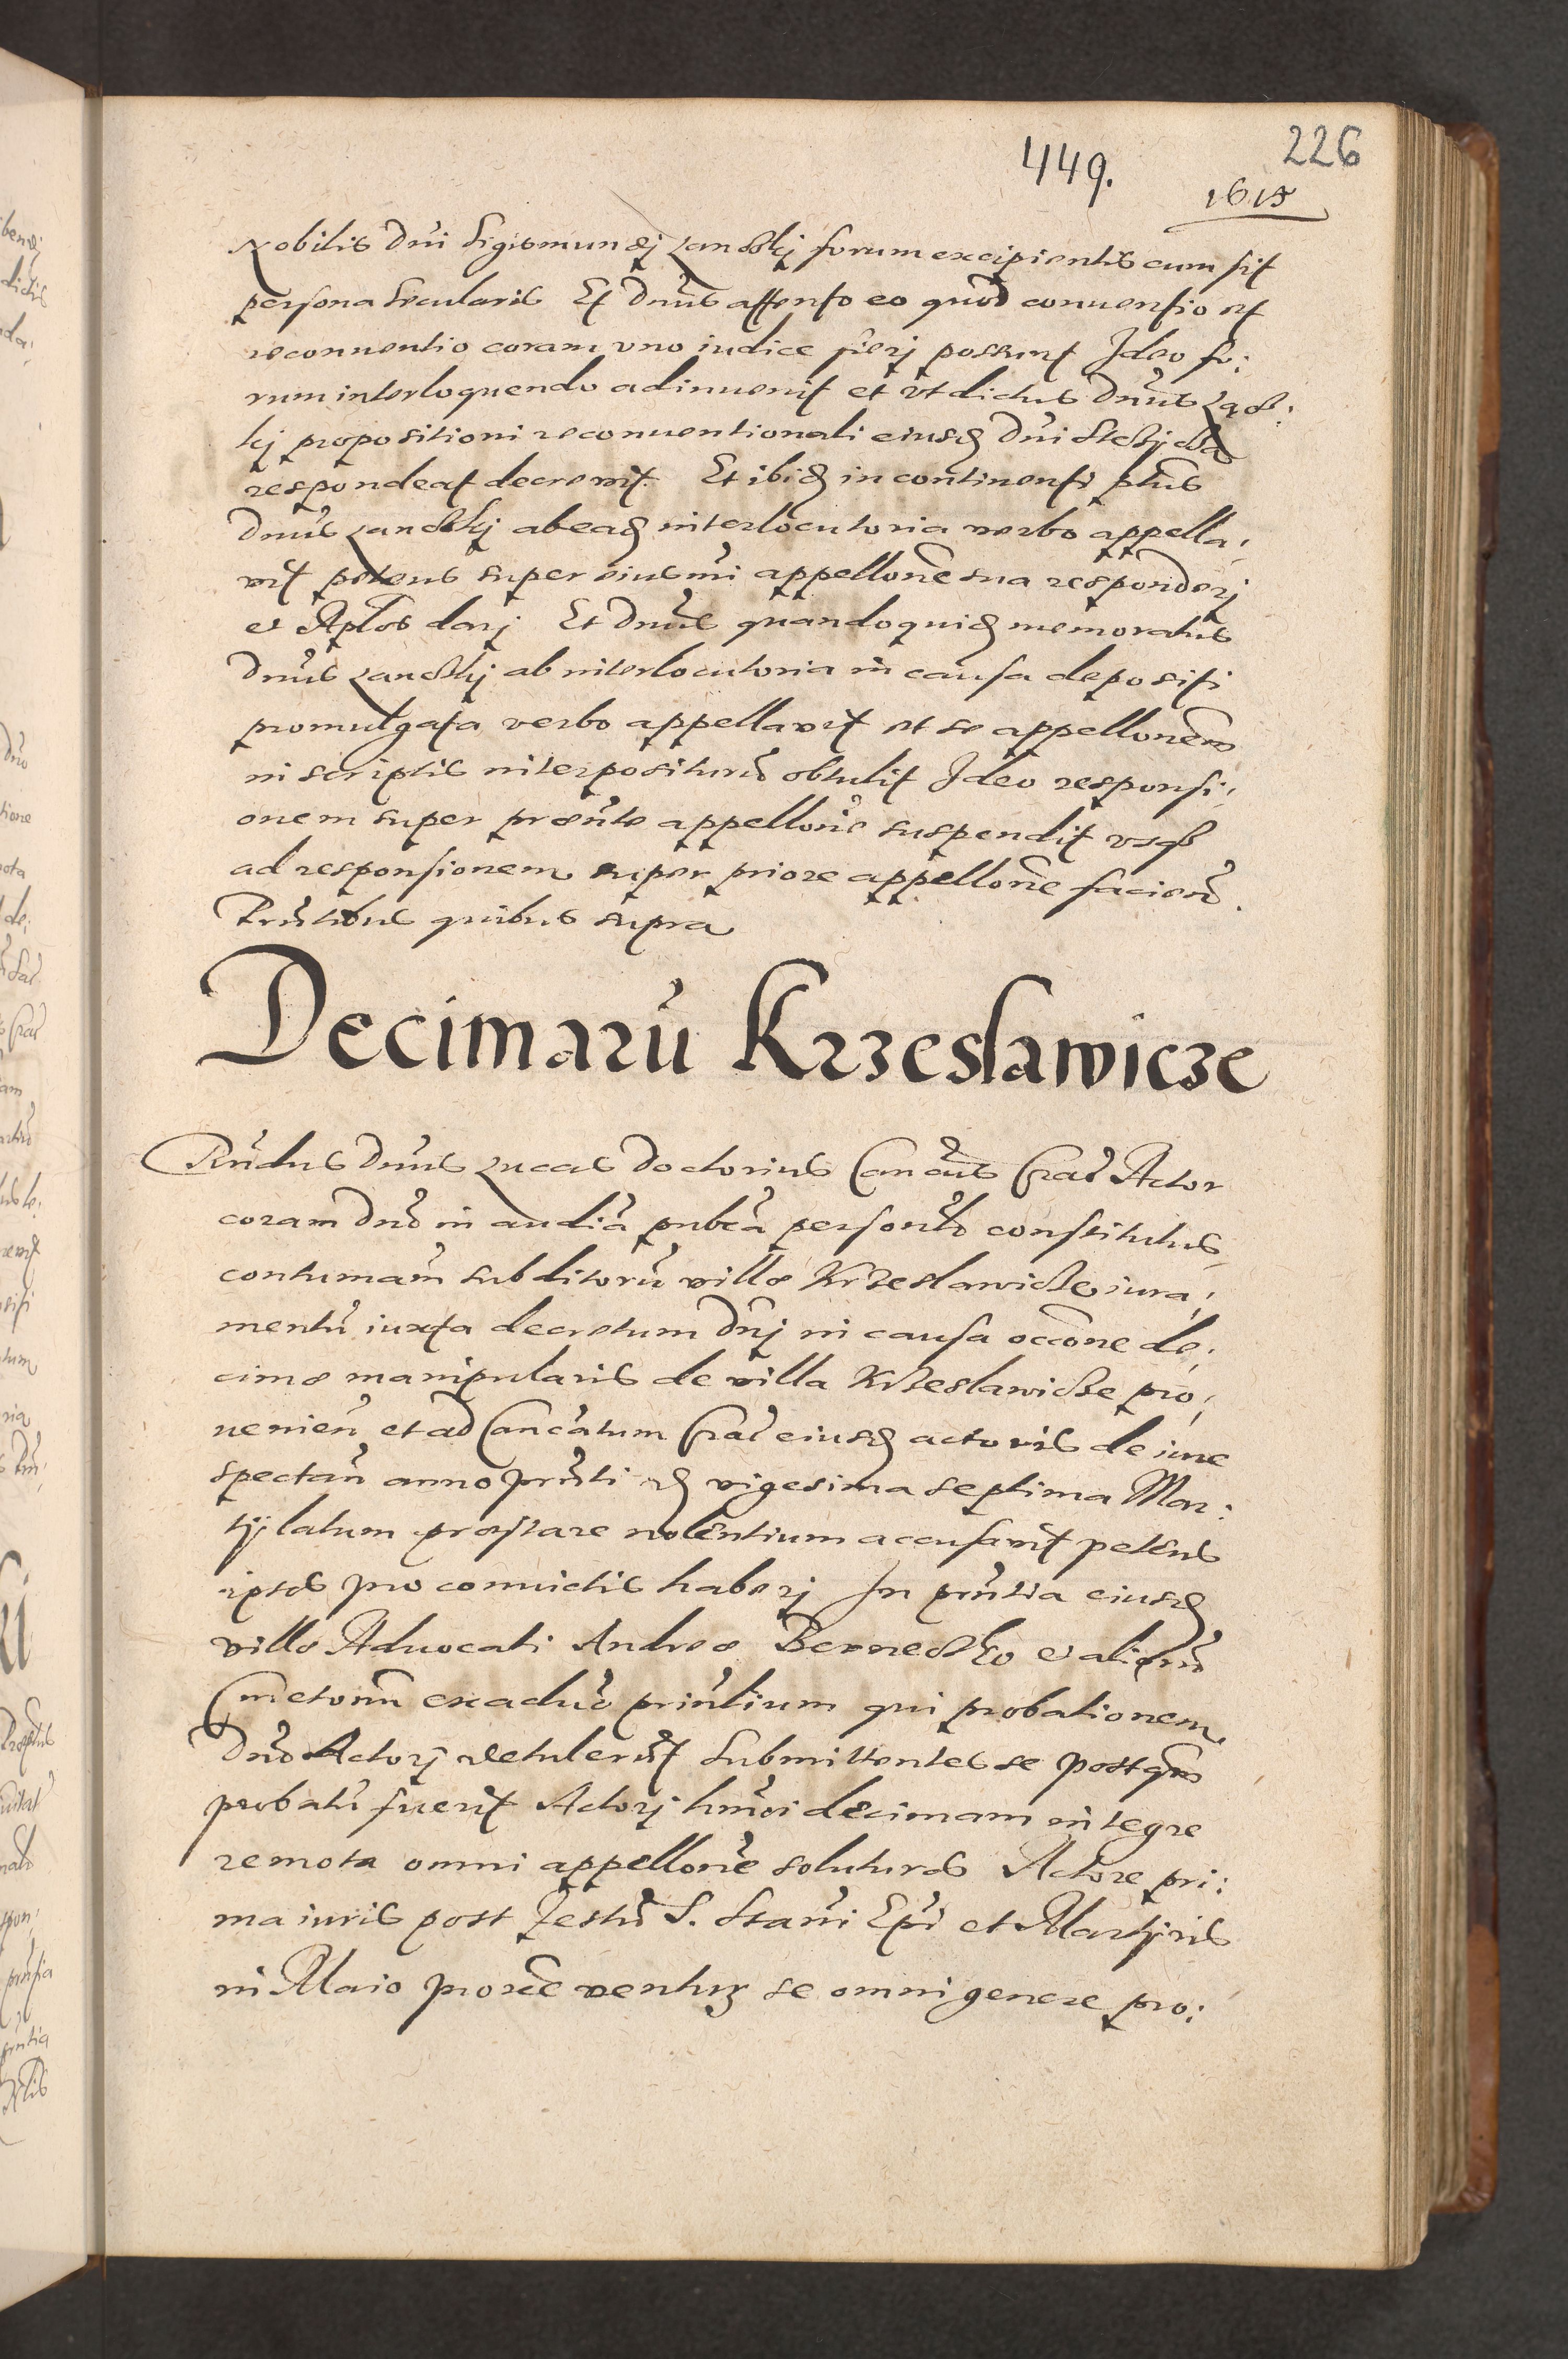 449.
226
1615
Nobilis Dni Sigismundj Zandskj forum excipientis cum sit
persona secularis Et Dnus attento eo quod conventio et
reconventio coram uno iudice fierj possunt Ideo fo:
rum interloquendo adinvenit et ut dictus Dnus
kj propositioni reconventionali eiusd Dni
respondeat decrevit. Et ibid in continenti
Dnus Zandskj ab ead interlocutoria verbo appella:
vit petens super eiusmi appellone sua responderj
et Aplos darj Et Dnus quandoquid memoratus
Dnus Zandskj ab interlocutoria in causa depositi
promulgata verbo appellavit et se appellonem
in scriptis interpositurū obtulit Ideo responsi:
onem super pnte appellone suspendit usq
ad responsionem super priore appellone faciend.
Pntibus quibus supra
Decimarū Krzeslawicze
Rndus Dnus Lucas Doctorius Cancus Crac Actor
coram Dno in audia publca personlr constitutus
contumam subditorū villæ Krzeslawicze iura:
mentū iuxta decretum Dnj in causa occone de:
cimæ manipularis de villa Krzeslawicze pro:
venien et ad Cancatum Crac eiusd actoris de iure
spectan anno pnti d vigesima septima Mar:
tij latum præstare nolentium accusavit petens
ipsos pro convictis haberj In pntia eiusd
villæ Advocati Andreæ et aliorū
Cmetonū ex adverso pntium qui probationem
Dno Actorj detulerūt submittentes se postqm
probatū fuerit Actorj hmoi decimam integre
remota omni appellone soluturos Actore pri:
ma iuris post Festū S. Stani Epi et Martyris
in Maio proxe ventur se omni genere pro: